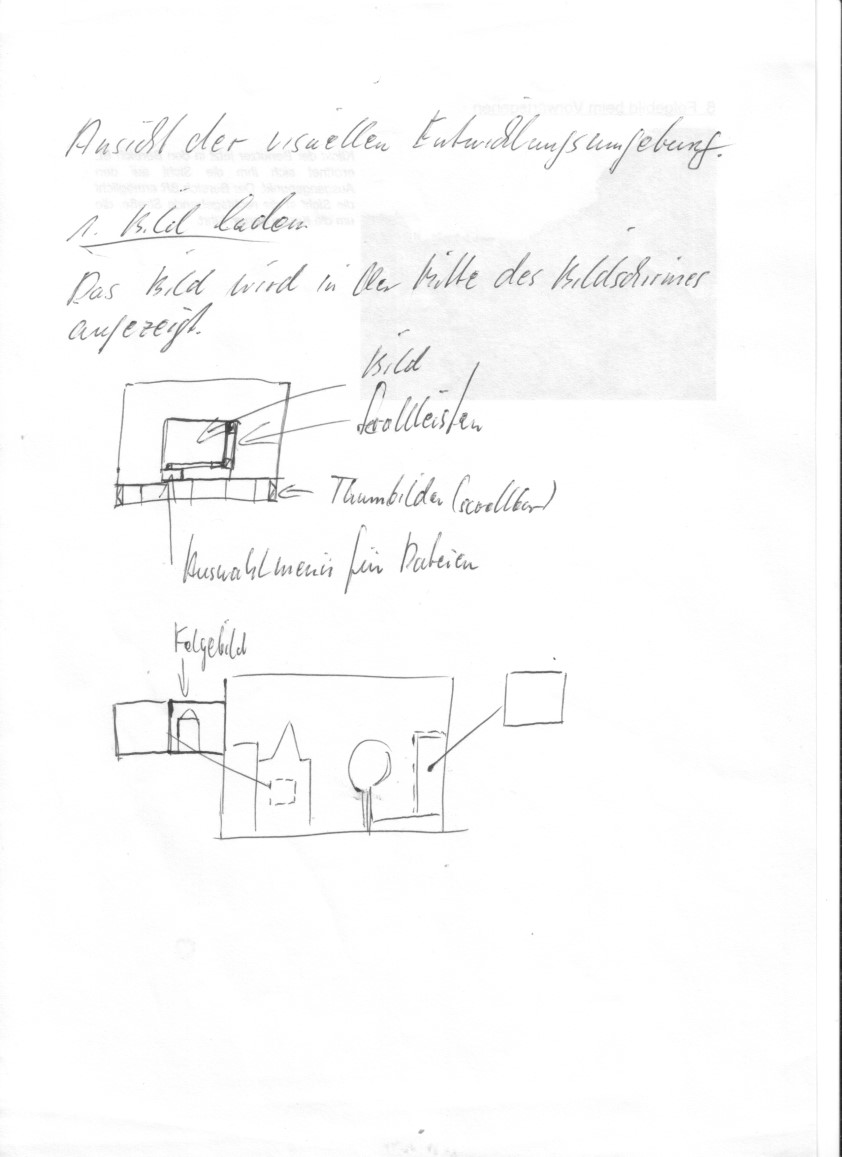 Ansicht der visuellen Entwicklungsumgebung.
1. Bild laden
Das Bild wird in der Mitte des Bildschirmes
angezeigt.
Bild
Scrolleisten
Thumbilder (scrollbar)
Auswahlmenü für Dateien
Folgebild